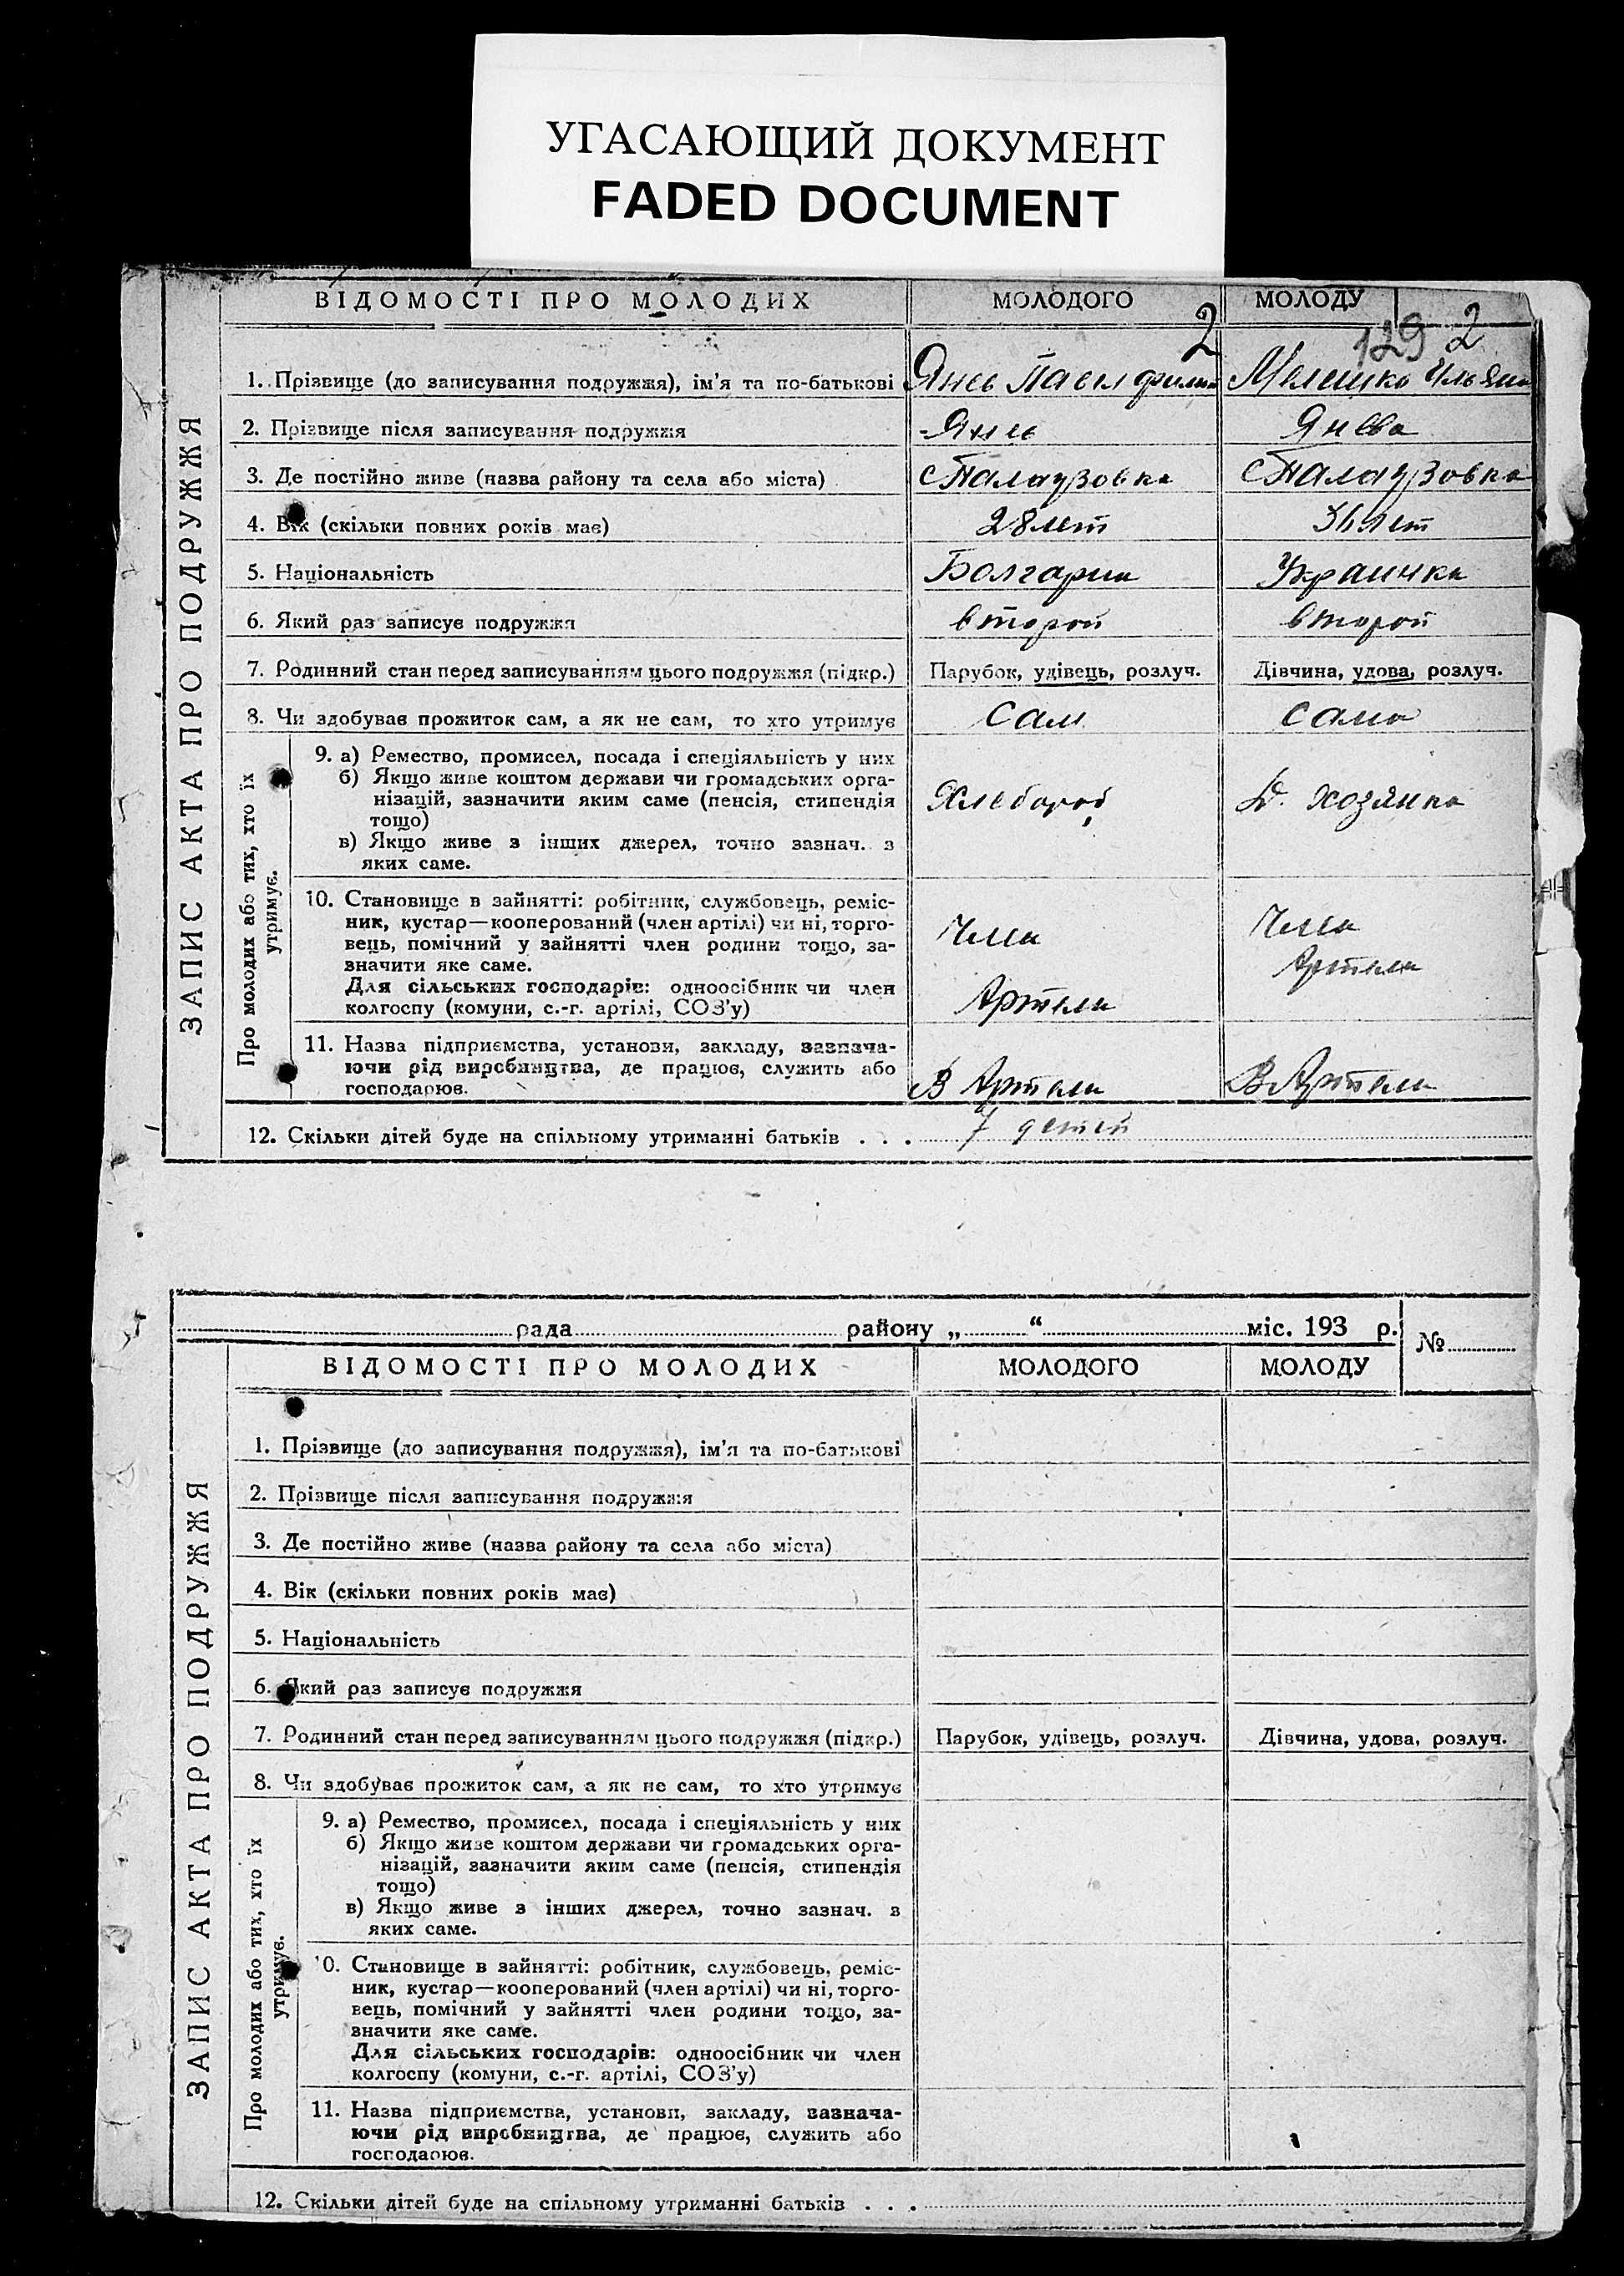 УГАСАЮЩИЙ ДОКУМЕНТ
FADED DOCUMENT
ВІДОМОСТІ ПРО МОЛОДИХ МОЛОДОГО МОЛОДУ
2 129 2
1. Прізвище (до записування подружжя), ім'я та по-батькові Янев Павел Филип Мелешко
2. Прізвище після записування подружжя Янев Янева
3. Де постійно живе (назва району та села або міста) с Палаузовка с Палаузовка
4. Вік (скільки повних років має) 28 лет лет
5. Національність Болгарин Украинка
6. Який раз записує подружжя второй второй
7. Родинний стан перед записуванням цього подружжя (підкр.) Парубок, удівець, розлуч. Дівчина, удова, розлуч.
8. Чи здобував прожиток сам, а як не сам, то хто утримує Сам Сама
9. а) Ремество, промисел, посада і спеціяльність у них
б) Якщо живе коштом держави чи громадських орга-
нізацій, зазначити яким саме (пенсія, стипендія Хлебороб Д. хозяйка
тощо)
в) Якщо живе з інших джерел, точно зазнач. з
яких саме.
10. Становище в зайнятті: робітник, службовець, реміс-
ник, кустар—кооперований (член артілі) чи ні, торго- Член Член
вець, помічний у зайнятті член родини тощо, за-
значити яке саме. Артели
Для сільських господарів: одноосібник чи член
колгоспу (комуни, с.-г. артілі, СОЗ'у) Артели
11. Назва підприємства, установи, закладу, зазнача-
ючи рід виробництва, де працює, служить або
господарює. В Артели В Артели
12. Скільки дітей буде на спільному утриманні батьків . . . 7 детей
Про молодих або тих, хто їх
утримує.
ЗАПИС АКТА ПРО ПОДРУЖЖЯ
рада району „ “ міс. 193 р. №
ВІДОМОСТІ ПРО МОЛОДИХ МОЛОДОГО МОЛОДУ
1. Прізвище (до записування подружжя), ім'я та по-батькові
2. Прізвище після записування подружжя
3. Де постійно живе (назва району та села або міста)
4. Вік (скільки повних років має)
5. Національність
6. Який раз записує подружжя
7. Родинний стан перед записуванням цього подружжя (підкр.) Парубок, удівець, розлуч. Дівчина, удова, розлуч.
8. Чи здобував прожиток сам, а як не сам, то хто утримує
9. а) Ремество, промисел, посада і спеціяльність у них
б) Якщо живе коштом держави чи громадських орга-
нізацій, зазначити яким саме (пенсія, стипендія
тощо)
в) Якщо живе з інших джерел, точно зазнач. з
яких саме.
10. Становище в зайнятті: робітник, службовець, реміс-
ник, кустар—кооперований (член артілі) чи ні, торго-
вець, помічний у зайнятті член родини тощо, за-
значити яке саме.
Для сільських господарів: одноосібник чи член
колгоспу (комуни, с.-г. артілі, СОЗ'у)
11. Назва підприємства, установи, закладу, зазнача-
ючи рід виробництва, де працює, служить або
господарює.
12. Скільки дітей буде на спільному утриманні батьків . . .
Про молодих або тих, хто їх
утримує.
ЗАПИС АКТА ПРО ПОДРУЖЖЯ